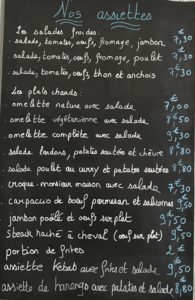 Nos assiettes
Les salades froides:
. salade, tomates, œufs, fromage, jambon 7,30
. salade, tomates, œufs, fromage, poulet 7,30
. salade, tomates, œufs, thon et anchois
Les plats chauds:
. omelette nature avec salade 7,00
. omelette végétarienne avec salade
. omelette complète avec salade
. salade lardons, patates sautées et chèvre 8,80
. salade poulet au curry et patates sautées 8,80
. croque-monsieur maison avec salade
. carpaccio de bœuf parmesan et
. jambon poêlé et œufs sur plat 9,50
. steack haché à cheval (œuf sur plat) 9,50
portion de frites
assiette Kebab avec frites et salade 9,50
assiette de harengs avec patates et salade 8,80